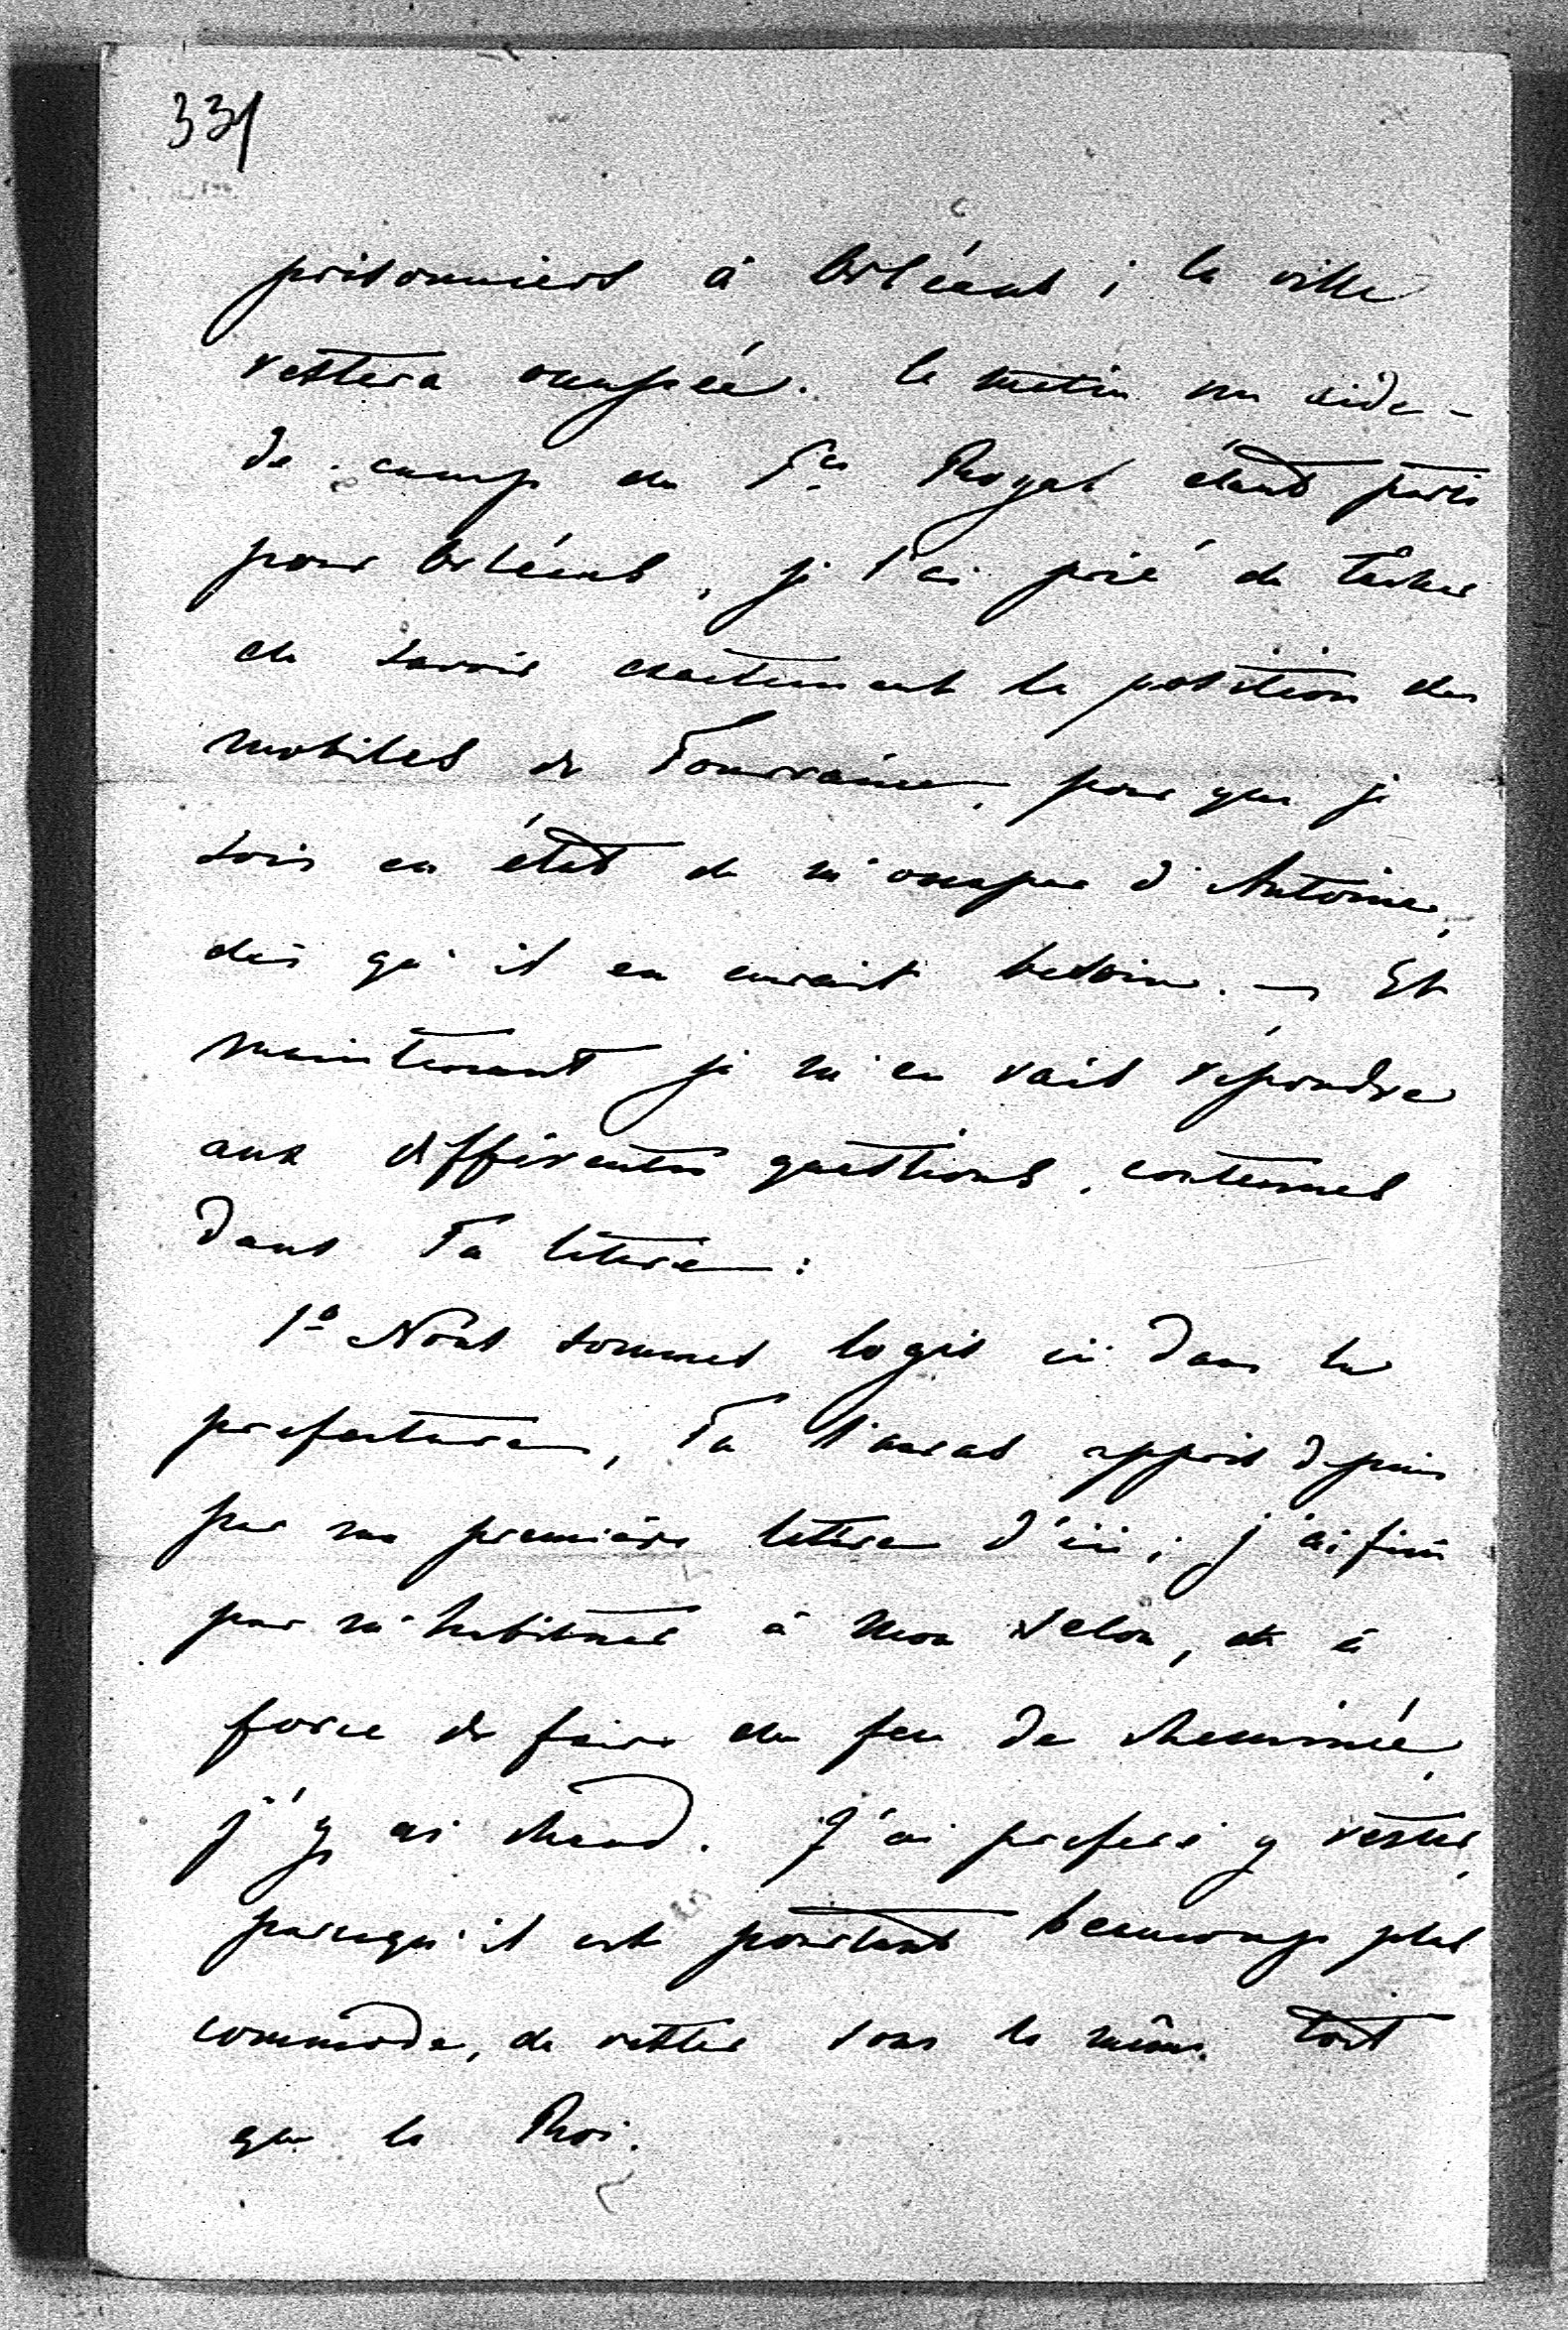 331
prisonniers à Orléans ; la ville
restera occupée. Ce matin un aide-
de-camp du Pce Royal étant parti
pour Orléans, je l'ai prié de tâcher
de savoir exactement la position des
mobiles de Tourraine, pour que je
sois en état de m'occuper d'Antoine,
dès qu'il en aurait besoin. — Et
maintenant je m'en vais répondre
aux différentes questions, contenues
dans Ta lettre :
1o Nous sommes logés ici dans la
prefecture, Tu l'auras appris depuis
par ma première lettre d'ici ; j'ai fini
par m'habituer à mon salon, et à
force de faire du feu de cheminée,
j'y ai chaud. J'ai preferé y rester,
parcequ'il est pourtant beaucoup plus
commode, de rester sous le même toit
que le Roi.